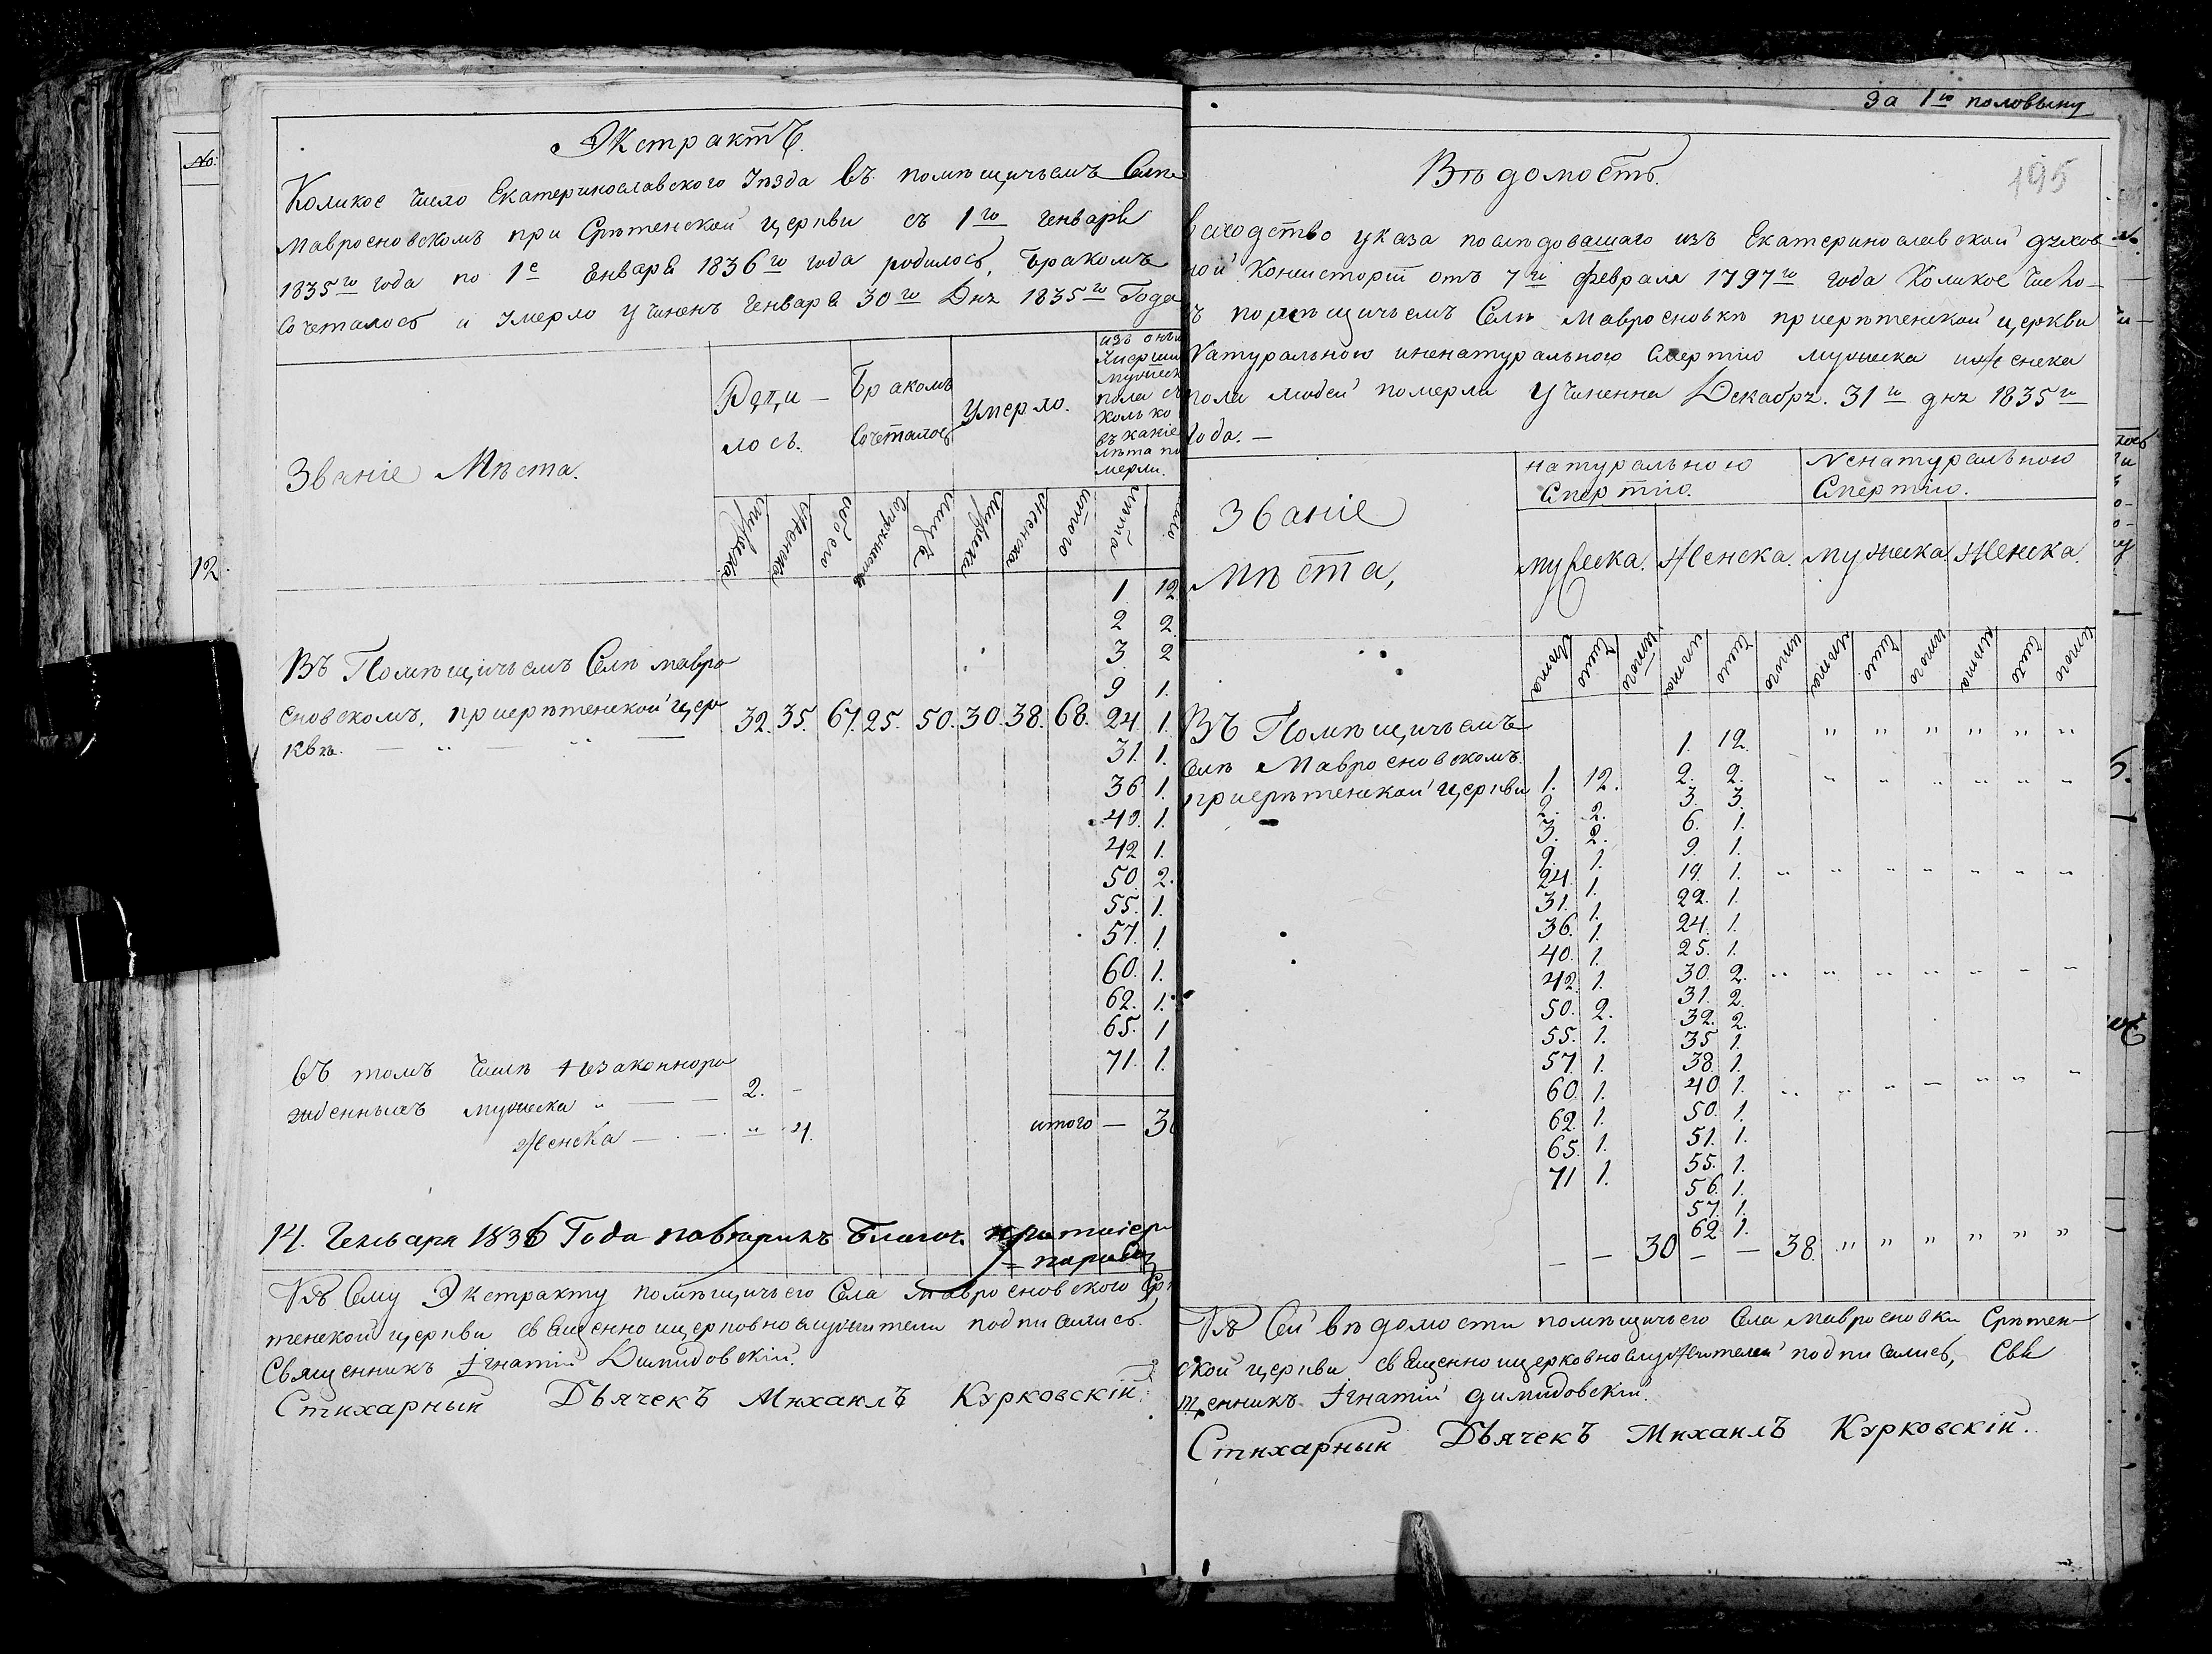 №:
12.
Экстрактъ.
Коликое число Екатеринославского Уѣзда въ помѣщичьемъ Селѣ
Мавросновскомъ при Срѣтенской церкви съ 1го Генваря
1835го года по 1е Енваря 1836го года родилось, Бракомъ
Сочеталось и Умерло учиненъ Генваря 30го Дня 1835го Года
Званіе Мѣста.
Роди-
лось.
Бракомъ
Сочеталось
Умерло.
изъ онъ
Умерши
Мужеск
пола съ
колько
въ какіе
лѣта по
мерли.
Мужеска
Женска
обоего
лицъ
Мужеска
Женска
итого
лѣта
1. 12
2 2
3. 2
9 1.
Въ Помѣщичьемъ Селѣ мавро
сновскомъ, присрѣтенской цер
квѣ. — „ — „ —
32. 35. 67. 25. 50. 30. 38. 68. 24 1.
31. 1.
36 1.
40. 1.
42 1.
50. 2.
55. 1.
57. 1.
60. 1.
62. 1.
65. 1
71. 1.
въ томъ числѣ незаконноро
жденныхъ мужеска „ — — 2. –
Женска — . — . „ 4.
итого — 30
14. Генваря 1836 Года Благоч.
Къ Сему Экстракту помѣщичьего Села Мавросновского Срѣ
тенской церкви священноицерковнослужители подписались.
Священникъ Игнатій Димидовскій.
Стихарный Дьячекъ Михаилъ Курковскій.
За 1ю половину
195
Вѣдомость.
Въ слѣдство указа послѣдовашаго изъ Екатеринославской духов
ной Консисторіи отъ 7го февраля 1797го года Коликое Число-
въ помѣщичьемъ Селѣ Мавросновкѣ присрѣтенской церкви
Натуральною иненатуральною Смертію мужеска иженска
пола людей померли учиненна Декабря. 31го дня 1835го
Года. —
Званіе
Мѣста,
натуральною
Смертію.
Ненатуральною
Смертію.
мужеска. Женска. мужеска. Женска.
лѣта Число итого лѣта Число итого лѣта Число итого лѣта Число итого
Въ Помѣщичьемъ
Селѣ Мавросновскомъ
присрѣтенской церкви
1. 12. 1. 12. „ „ „ „ „ „
2. 2. 2. 2. „ „ „ „ „ „
3. 2. 3. 3.
9. 1. 6. 1.
24. 1. 9. 1.
31. 1. 19. 1. „ „ „ „ „ „ „
36. 1. 22. 1.
40. 1. 24. 1.
42. 1. 25. 1.
50. 2. 30. 2. „ „ „ „ „ „ „
55. 1. 31. 2.
57. 1. 32. 2.
60. 1. 35 1.
62. 1. 38. 1.
65. 1. 40 1. „ „ „ „ „ „ „
71 1. 50. 1.
51. 1.
55. 1.
56. 1.
57. 1.
62. 1.
— — 30 — — 38. „ „ „ „ „ „
Къ Сей вѣдомости помѣщичьего Села Мавросновки Срѣтен-
ской церкви священноицерковнослужители подписались, Свя
щенникъ Игнатій Димидовскій.
Стихарный Дьячекъ Михаилъ Курковскій.